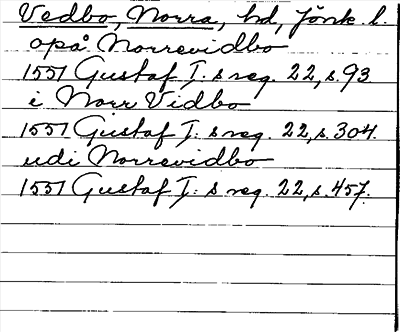 Vedbo, Norra, hd, Jönk. l.
opå Norrevidbo
1551 Gustaf I: s reg. 22, s. 93
i Norr Vidbo
1551 Gustaf I: s reg. 22, s. 304.
udi Norrevidbo
1551 Gustaf I: s reg. 22, s. 457.